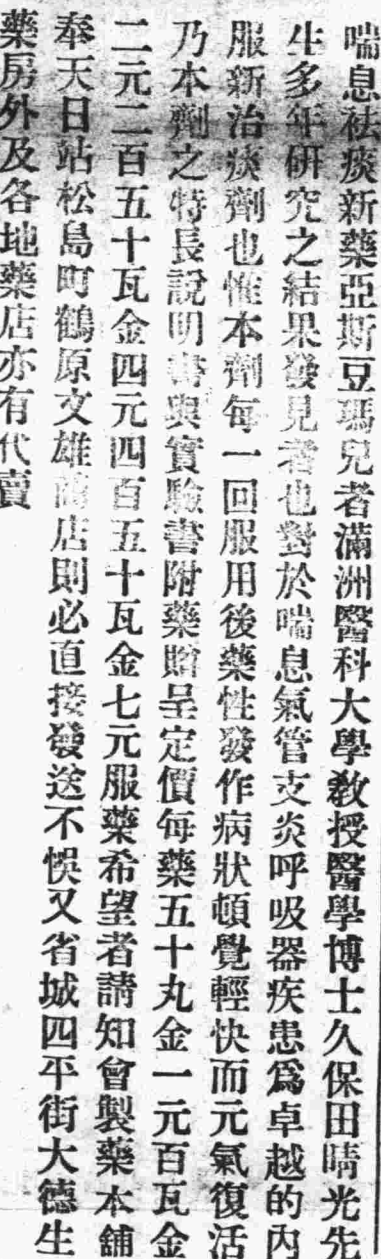 喘息祛痰新藥亞斯豆瑪兒者滿洲醫科大學敎授醫學博士久保田晴光先
生多年硏究之結果發見者也對於喘息氣管支炎呼吸器疾患爲卓越的內
服新治痰劑也惟本劑每一回服用後藥性發作病狀頓覺輕快而元氣復活
乃本劑之特長說明書與實驗書附藥贈呈定價每藥五十丸金一元百瓦金
二元二百五十瓦金四元四百五十瓦金七元服藥希望者請知會製藥本舖
奉天日站松島町鶴原文雄商店則必直接發送不悞又省城四平街大德生
藥房外及各地藥店亦有代賣